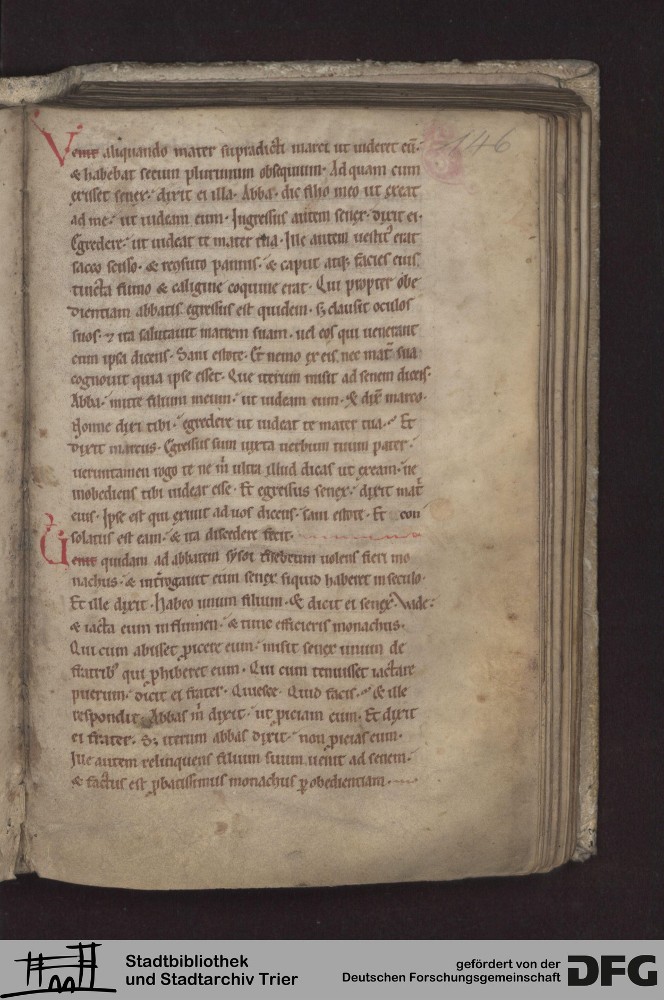 146
Venit aliquando mater supradicti marci ut uideret eū·
& habebat secum plurimum obsequium· Ad quam cum
exisset senex· dixit ei illa· Abba· dic filio meo ut exeat
ad me· ut uideam eum· Ingressus autem senex· dixit ei·
Egredere· ut uideat te mater tua· Ille autem uestitꝰ erat
sacco scisso· & resuto pannis· & caput atq; facies eius
tincta fumo & caligine coquine erat· Qui propter obe
dientiam abbatis egressus est quidem· sꝫ clausit oculos
suos· ⁊ ita salutauit matrem suam· uel eos qui uenerant
cum ipsa dicens· Sani estote· Et nemo ex eis, nec mat̄ sua
cognouit quia ipse esset· Que iterum misit ad senem dicēs·
Abba· mitte filium meum· ut uideam eum· & dix̄ marco·
Nonne dixi tibi· egredere ut uideat te mater tua· Et
dixit marcus· Egressus sum iuxta uerbum tuum pater·
ueruntamen rogo te ne m̄ ultra illud dicas ut exeam· ne
inobediens tibi uidear esse· Et egressus senex· dixit mat̄
eius· Ipse est qui exiuit ad uos dicens· sani estote· Et con
solatus est eam· & ita discedere fecit·
Uenit quidam ad abbatem sysoi thebeum uolens fieri mo
nachus· & int̄rogauit eum senex siquid haberet in seculo·
Et ille dixit· Habeo unum filium· & dicit ei senex· Vade·
& iacta eum in flumen· & tunc efficieris monachus·
Qui cum abisset ꝓicere eum· misit senex unum de
fratribꝰ qui ꝓhiberet eum· Qui cum tenuisset iactare
puerum· dicit ei frater· Quiesce· Quid facis· & ille
respondit· Abbas m̄ dixit· ut ꝓiciam eum· Et dixit
ei frater· Sꝫ iterum abbas dixit· non ꝓicias eum·
Ille autem relinquens filium suum uenit ad senem·
& factus est ꝓbatissimus monachus ꝑ obedientiam·
Stadtbibliothek
und Stadtarchiv Trier
gefördert von der
Deutschen Forschungsgemeinschaft
DFG